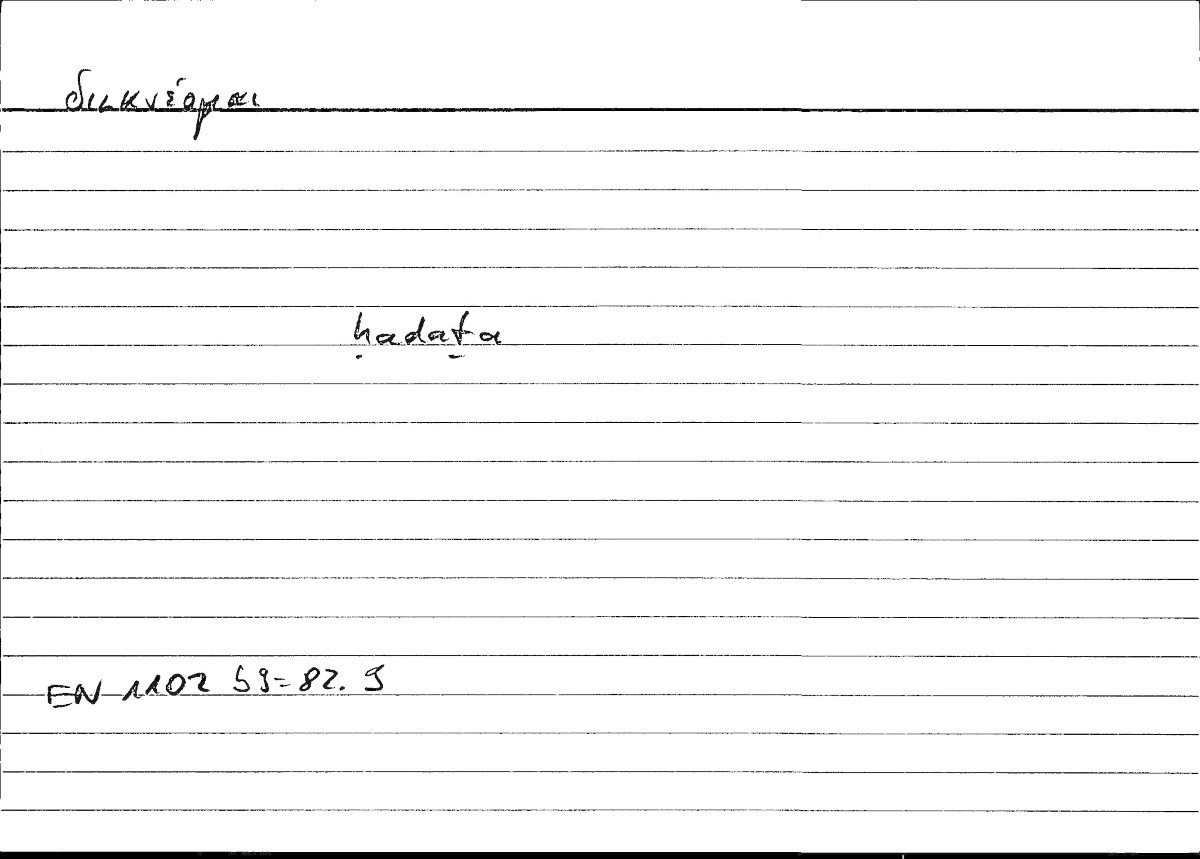 διικνέομαι
ḥadaṯa
EN 1102 b9 = 82.9